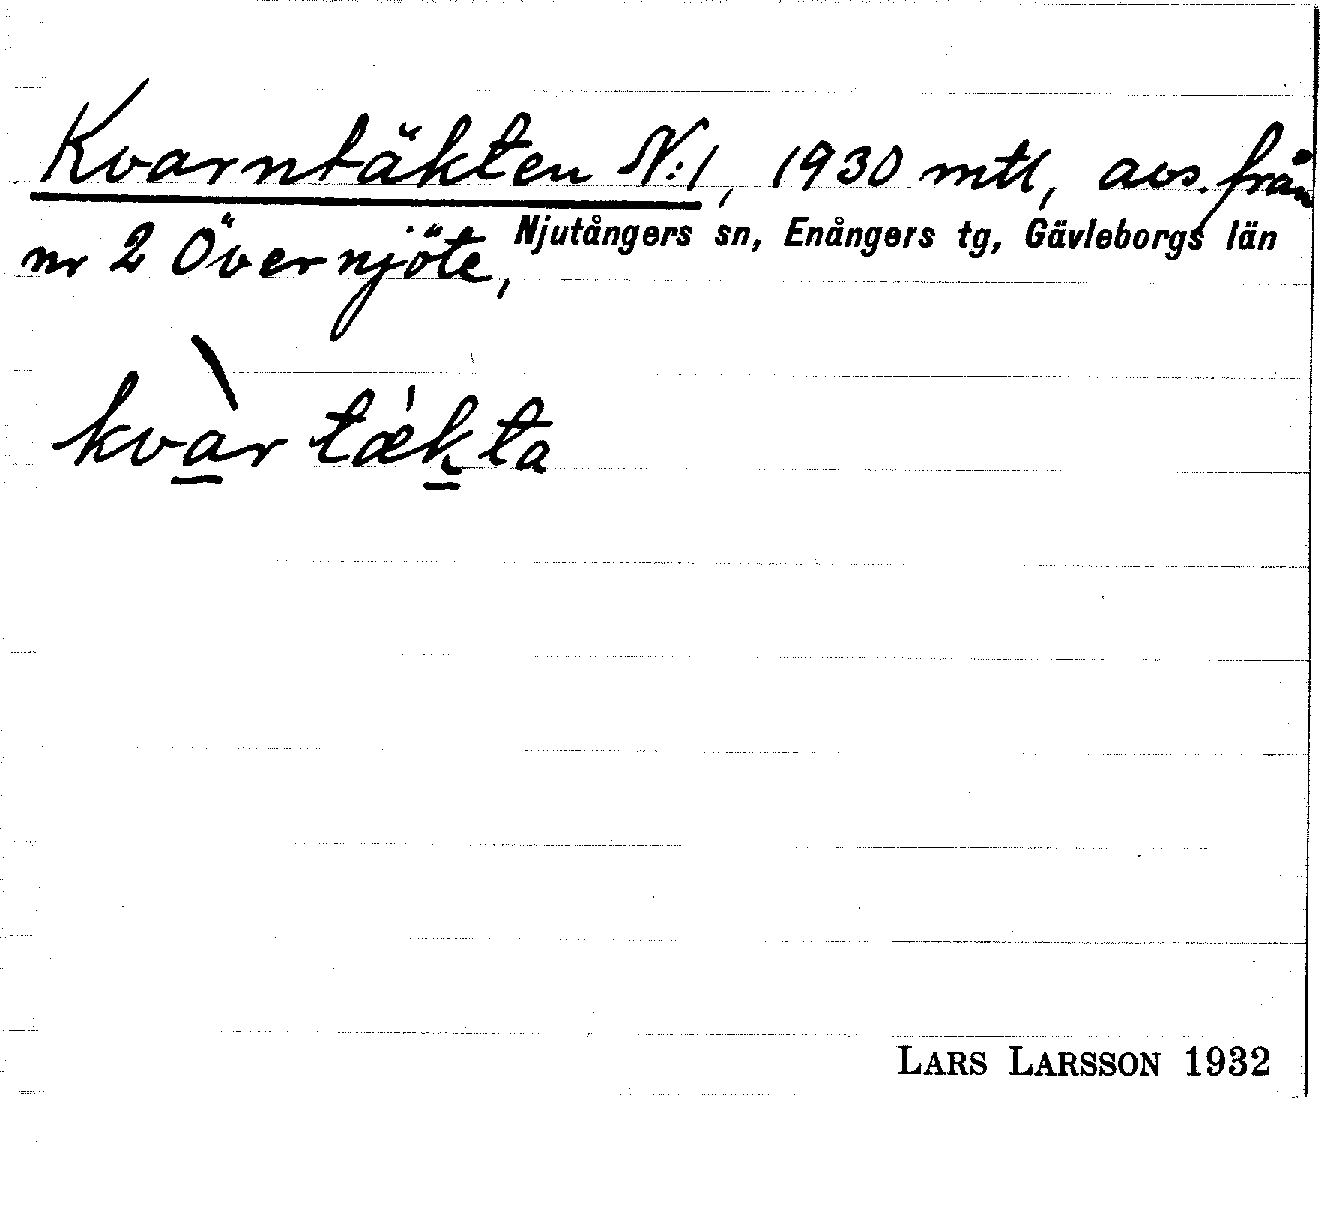 Kvarntäkten N:1, 1930 mtl, avs. från
nr 2 Övernjöte, Njutångers sn, Enångers tg, Gävleborgs län
kvàr tækta
LARS LARSSON 1932